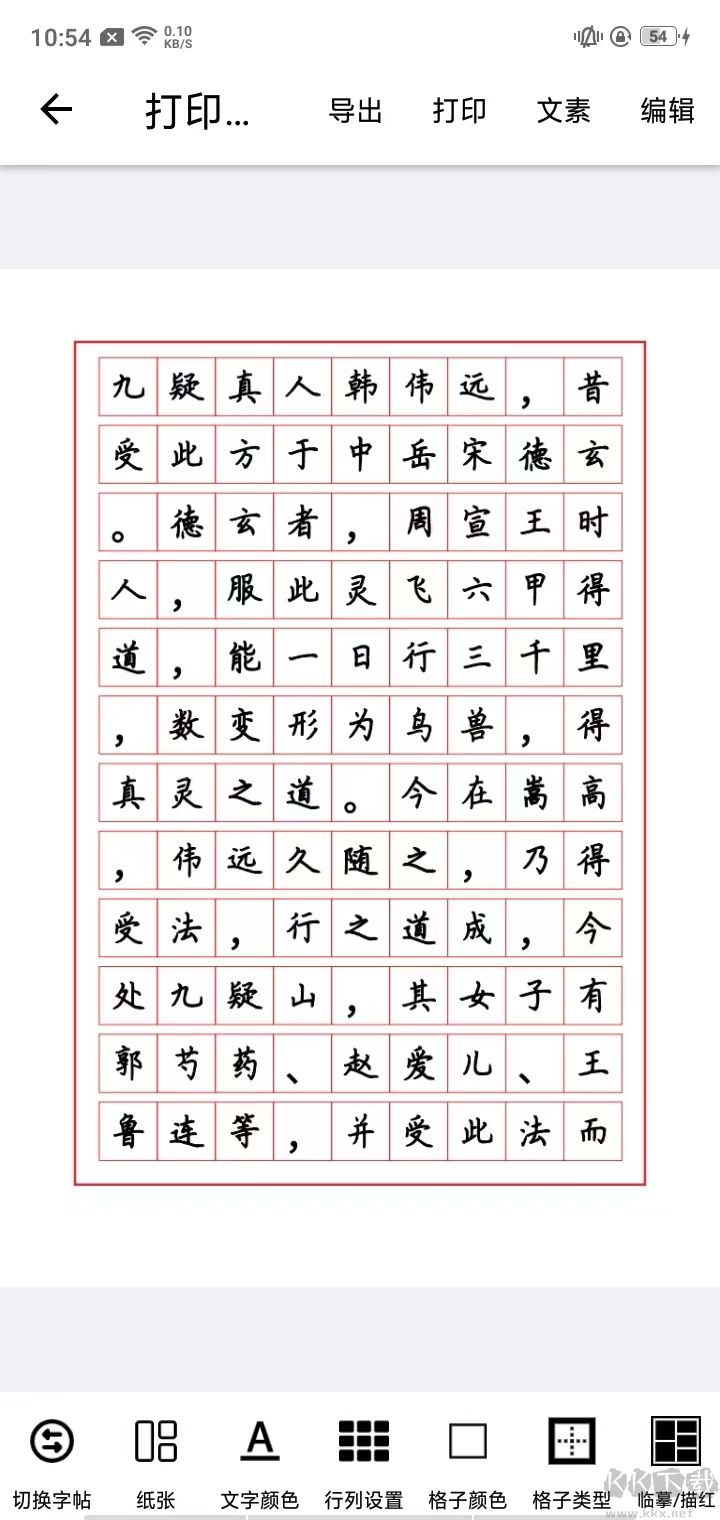 10:54 0.10 KB/S 54
打印... 导出 打印 文素 编辑
九疑真人韩伟远，昔
受此方于中岳宋德玄
。德玄者，周宣王时
人，服此灵飞六甲得
道，能一日行三千里
，数变形为鸟兽，得
真灵之道。今在嵩高
，伟远久随之，乃得
受法，行之道成，今
处九疑山，其女子有
郭芍药、赵爱儿、王
鲁连等，并受此法而
切换字帖 纸张 文字颜色 行列设置 格子颜色 格子类型 临摹/描红
KK下载
www.kkx.net